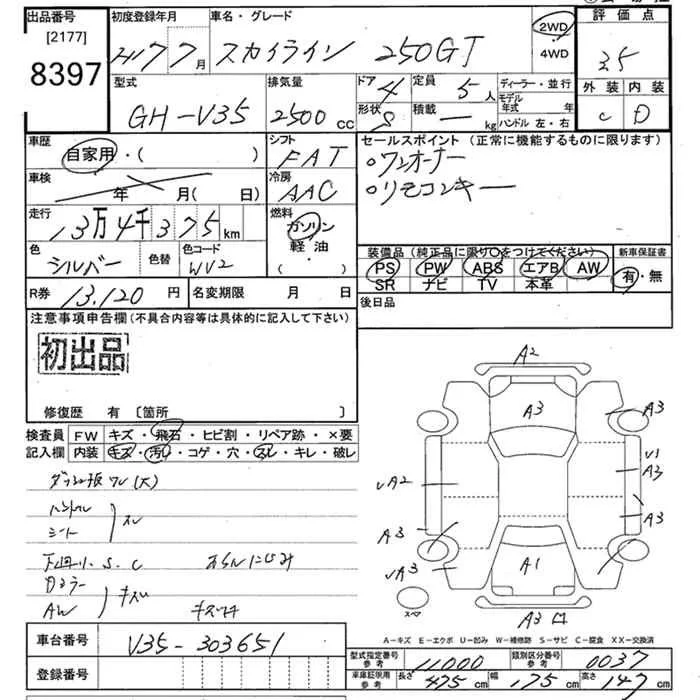 出品番号
[2177]
8397
初度登録年月
H17 7月
車名・グレード
スカイライン 250GT
2WD
・
4WD
評価点
3.5
外装 内装
C D
型式
GH-V35
排気量
2500cc
ドア 4
形状 S
定員 5人
積載 ー kg
ディーラー・並行
モデル年式 年
ハンドル 左・右
車歴
自家用・( )
車検
年 月(日)
走行
13万4千375km
色
シルバー
色替
色コード
WV2
シフト
FAT
冷房
AAC
燃料
ガソリン
軽・油
・( )
セールスポイント (正常に機能するものに限ります)
○ワンオーナー
○リモコンキー
装備品(純正品に限り○をつけてください)
PS PW ABS エアB AW
SR ナビ TV 本革
新車保証書
有・無
後日品
R券 13,120円
名変期限 月 日
注意事項申告欄(不具合内容等は具体的に記入して下さい)
初出品
修復歴 有 〔箇所 〕
検査員記入欄
FW キズ・飛石・ヒビ割・リペア跡・×要
内装 キズ・汚レ・コゲ・穴・スレ・キレ・破レ
ハンドル
シート
スレ
下回り S.C
オイルにじみ
AW
キズ
A2
A3
A3
V1
A3
A3
A1
A3
UA2
A3
UA3
スペア
A-キズ E-エクボ U-凹み W-補修跡 S-サビ C-腐食 XX-交換済
車台番号 V35-303651
登録番号
型式指定番号 参考 11000
類別区分番号 参考 0037
車庫証明用 参考 長さ 475cm 幅 175cm 高さ 147cm